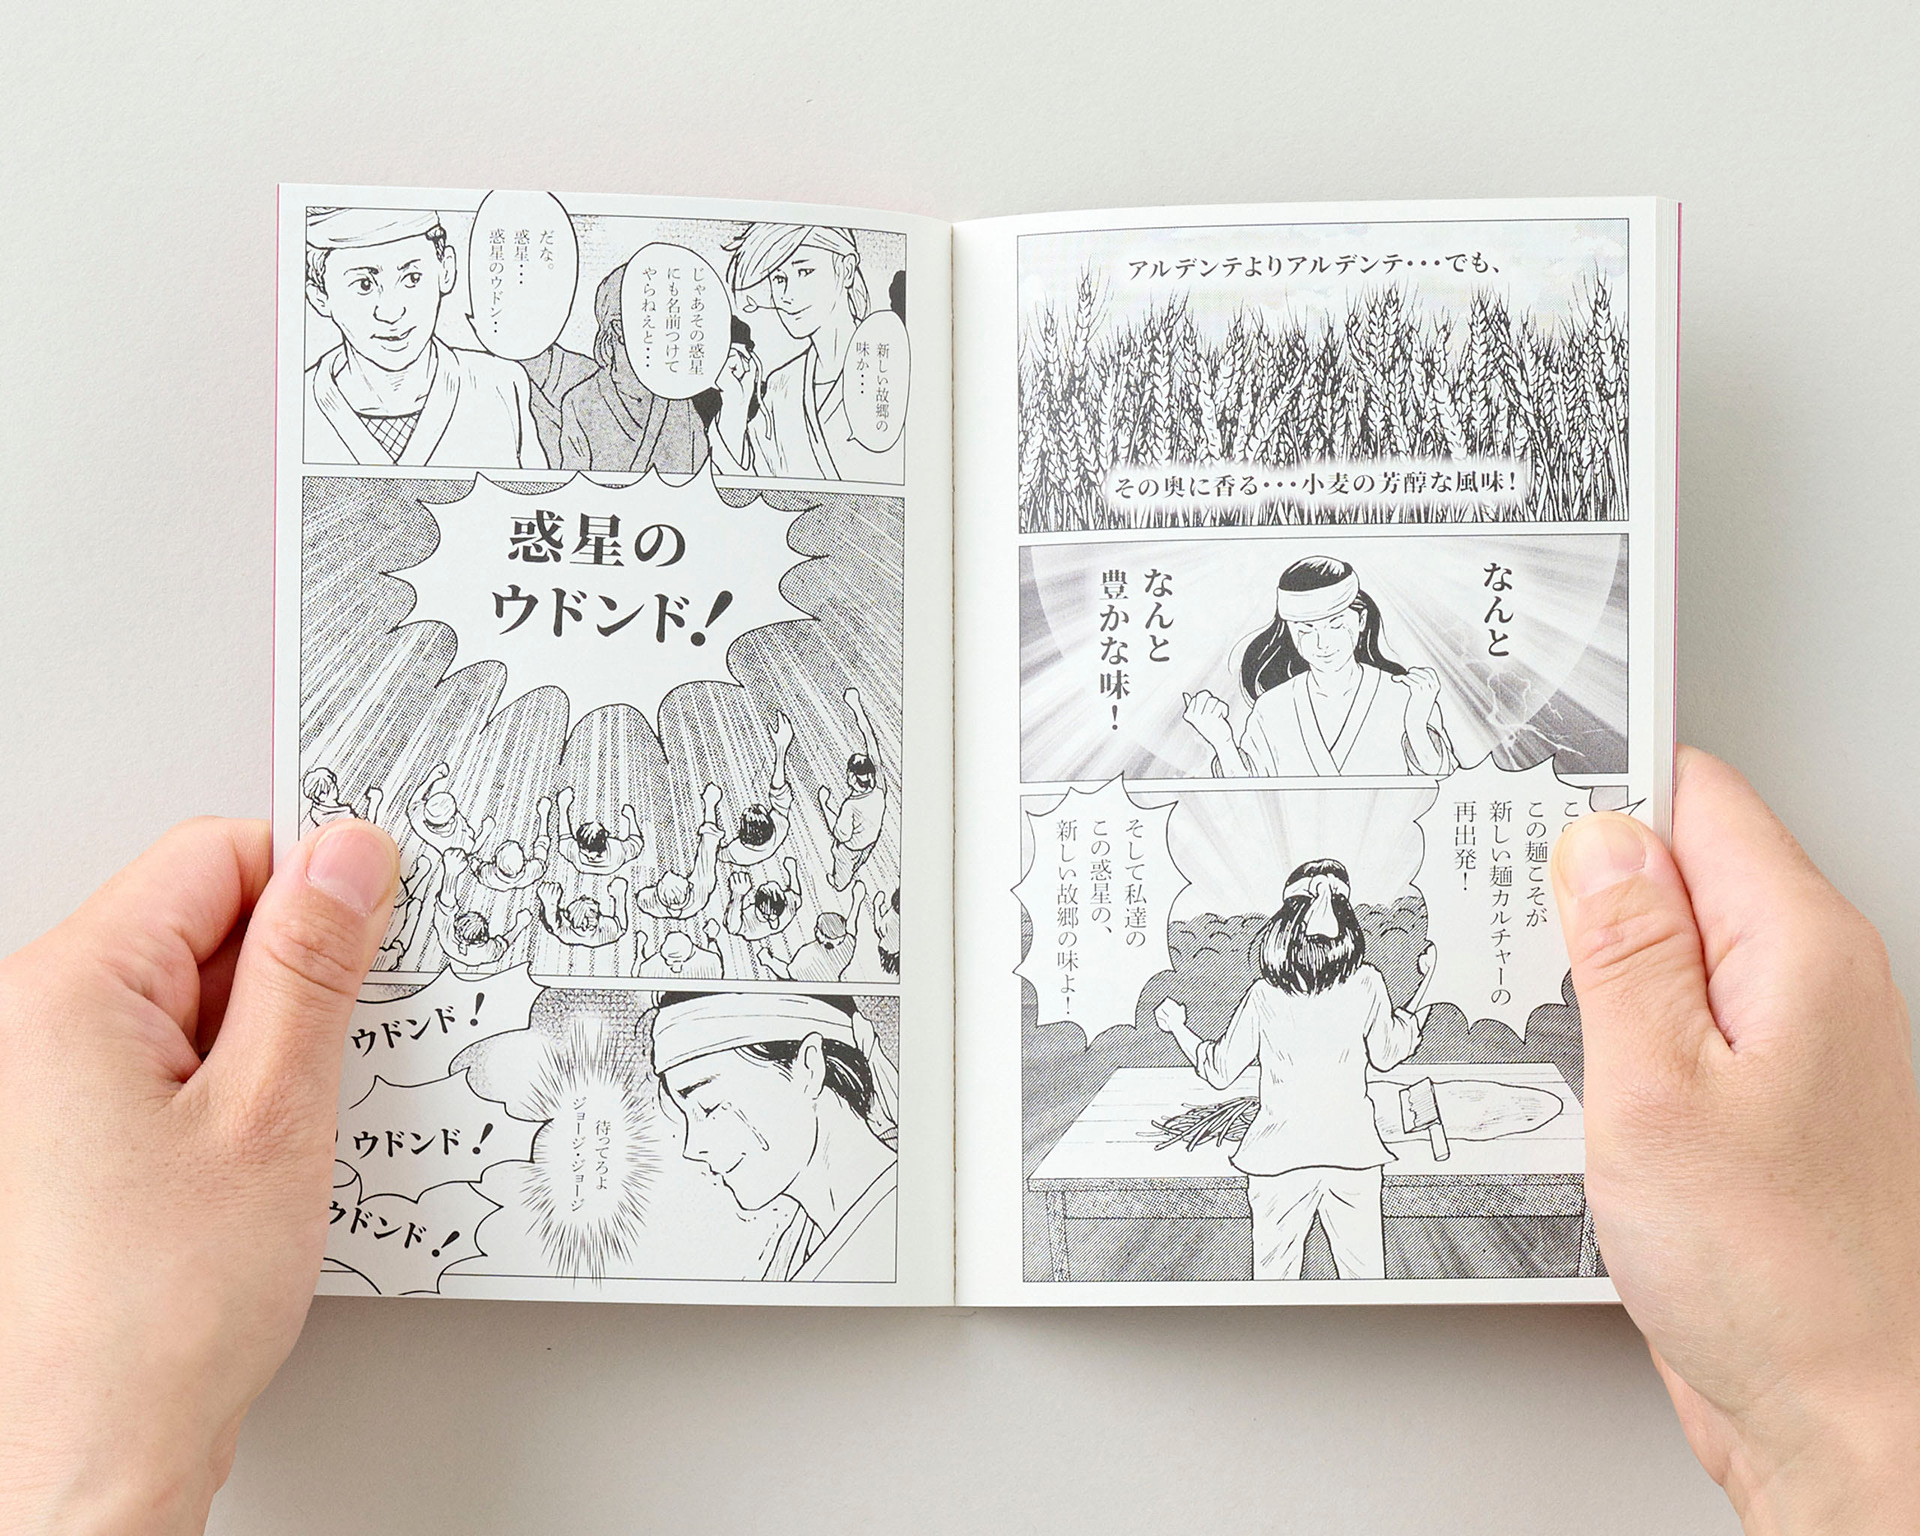 アルデンテよりアルデンテ・・・でも、
その奥に香る・・・小麦の芳醇な風味！
なんと
なんと
豊かな味！
この麺こそが
新しい麺カルチャーの
再出発！
そして私達の
この惑星の、
新しい故郷の味よ！
新しい故郷の
味か・・・
じゃあその惑星
にも名前つけて
やらねえと・・・
だな。
惑星・・・
惑星のウドン・・
惑星の
ウドンド！
ウドンド！
ウドンド！
ウドンド！
待ってろよ
ジョージ・ジョージ